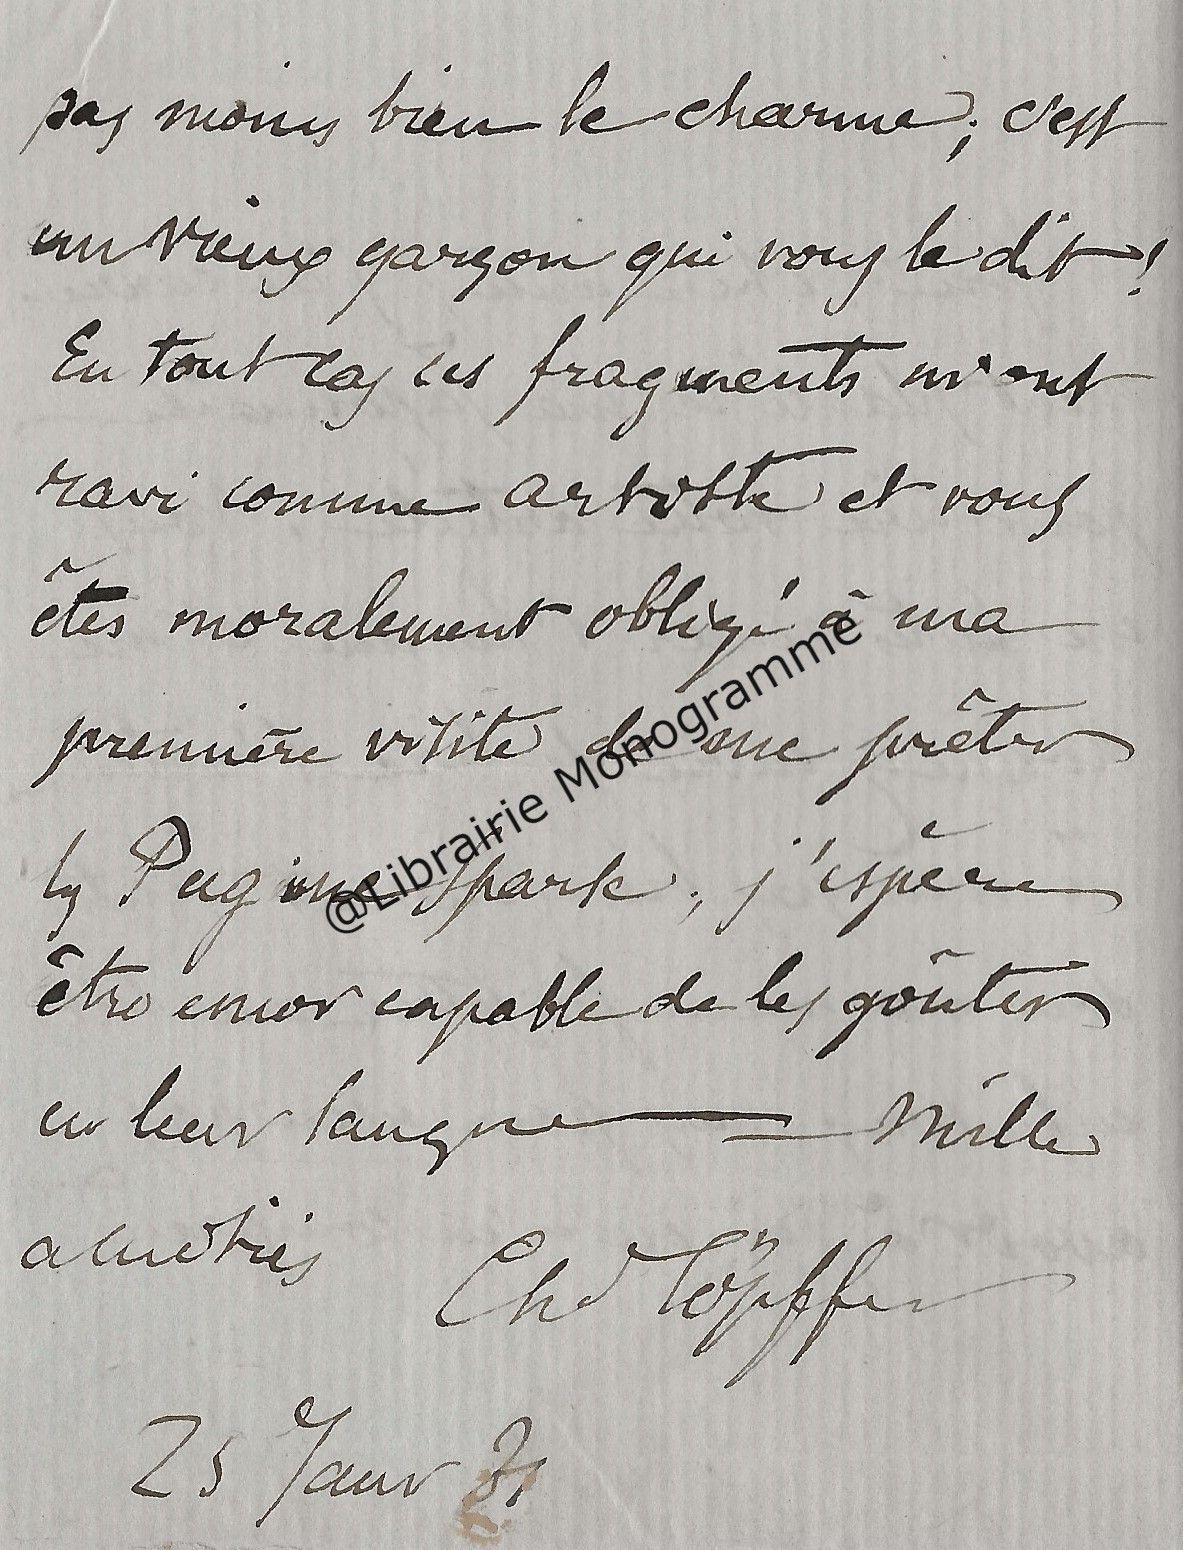 pas moins bien le charme; c'est
un vieux garçon qui vous le dit!
En tout cas ces fragments m'ont
ravi comme artiste et vous
êtes moralement obligé à ma
première visite de me prêter
les Pagine sparse; j'espère
être encor capable de les goûter
en leur langue — Mille
amitiés Chs Töpffer
25 Janv
@Librairie Monogramme